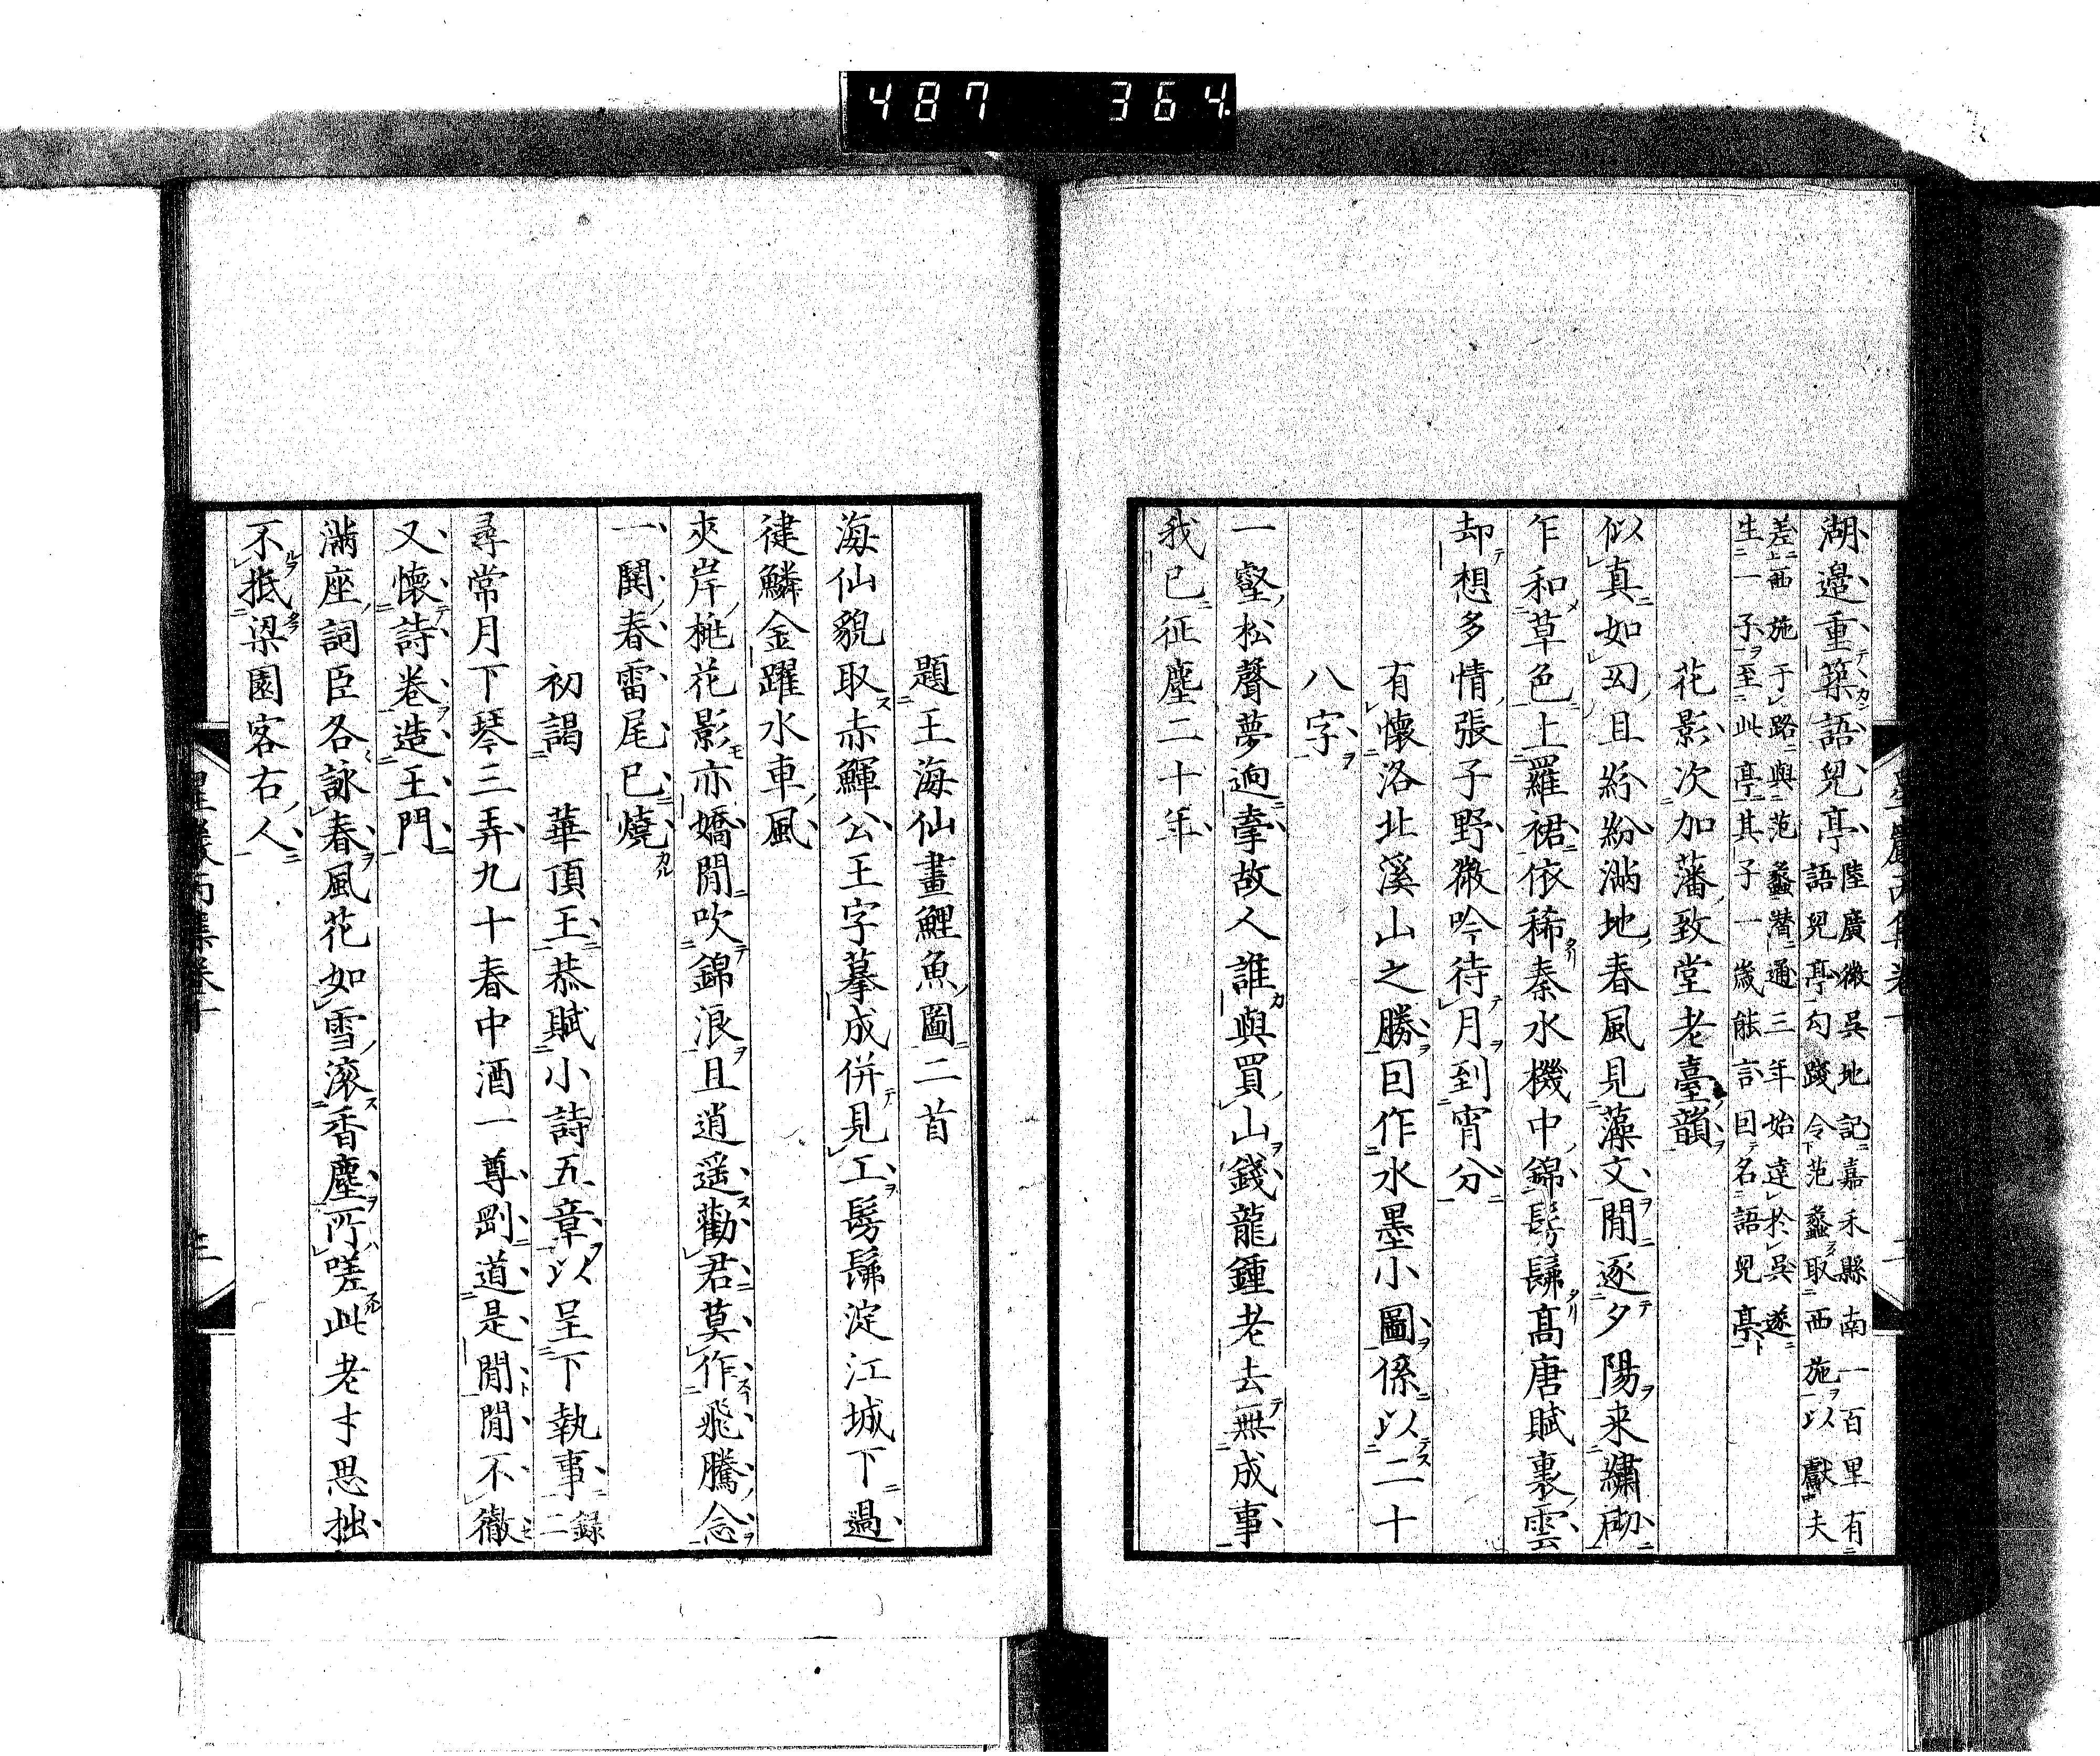 487 364
湖邉重築語兒亭
陸廣微吳地記嘉禾縣南一百里有
語兒亭勾踐令范蠡取西施以獻夫
差西施于路與范蠡潛通三年始達於吳遂
生一子至此亭其子一歲能言因名語兒亭
花影次加藩致堂老臺韻
似真如幻且紛紛滿地春風見藻文閒逐夕陽来繡砌
乍和草色上羅裙依稀秦水機中錦髣髴髙唐賦裏雲
却想多情張子野微吟待月到宵分
有懷洛北溪山之勝因作水墨小圖係以二十
八字
一壑松聲夢迥牽故人誰與買山錢龍鍾老去無成事
我已征塵二十年
題王海仙畫鯉魚圖二首
海仙貌取赤鯶公王字摹成併見工髣髴淀江城下過
健鱗金躍水車風
夾岸桃花影亦嬌閒吹錦浪且逍遥勸君莫作飛騰念
一鬨春雷尾已燒
初謁 華頂王恭賦小詩五章以呈下執事 錄二
尋常月下琴三弄九十春中酒一尊剛道是閒閒不徹
又懷詩卷造王門
滿座詞臣各詠春風花如雪滚香塵所嗟此老才思拙
不抵梁園客右人